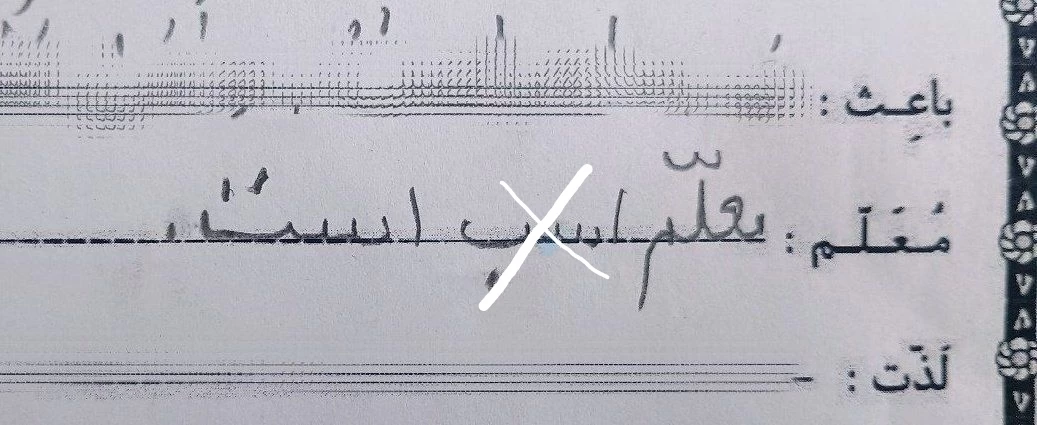 باعِث :
مُعَلّم : معلّم اسب است.
لَذّت :